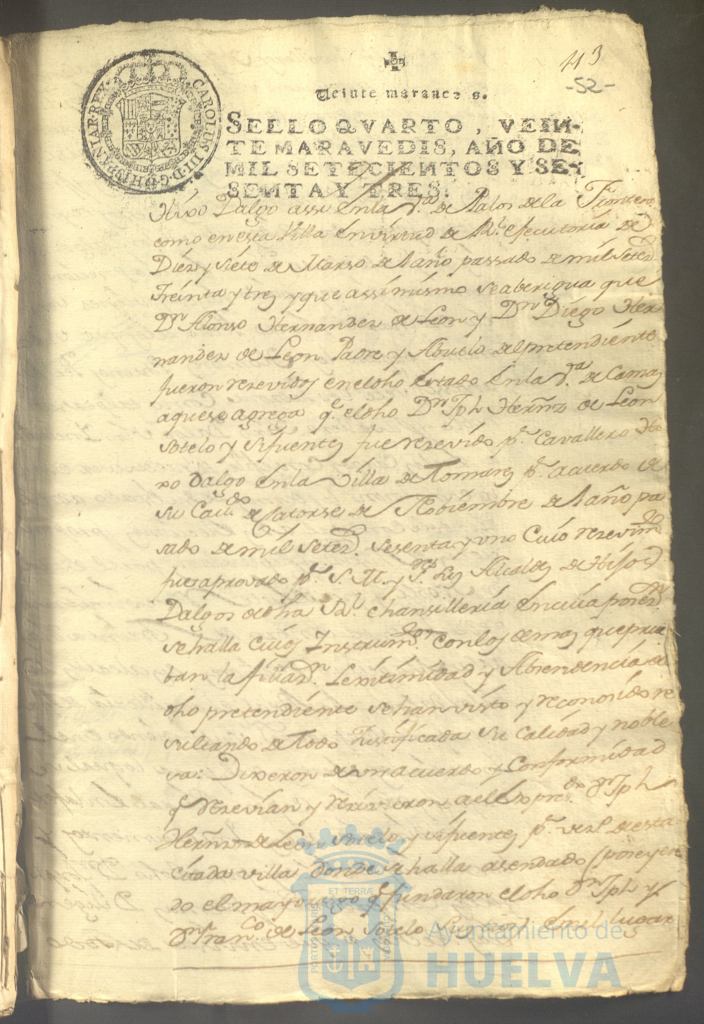 113
-52-
CAROLUS III D. G. HISPANIAR. REX
Veinte maravedis.
SELLO QVARTO, VEIN-
TE MARAVEDIS, AÑO DE
MIL SETECIENTOS Y SE-
SENTA Y TRES.
Hixo Dalgo assi en la Va. de Palos de la Frontera
como en esta Villa en virtud de Rl. efecutoria de
Diez y Siete de Marso de el año passado de mil Setez.
Treinta y tres y que assimismo se aberigua que
Dn. Alonso Hernandez de Leon y Dn. Diego Her
nandez de Leon Padre y Abuelo del pretendiente
fueron rezevidos en el dho Estado en la Va. de Camas
a que se agrega qe. el dho Dn. Jph Herñz de Leon
Sotelo y Sifuentes fue rezevido pr. Cavallero Hi
xo Dalgo en la Villa de Tomares pr. acuerdo de
su Cavdo. de Catorse de Nobiembre de el año pa
sado de mil Setez. Sesenta y uno Cuio rezevim.to
fue aprovado pr. S. M. y Srs. Alcaldes de Hijos
Dalgos de dha Rl. Chansilleria en cuia poder
se halla Cuios Instrumtos. con los demas que prue
ban la filiazn. Lexitimidad y Absendencia de
dho pretendiente se han visto y reconosido re
sultando de todo Justificada su Calidad y noble
za: Dixeron de un acuerdo y Conformidad
qe. Rezevian y Rezivieron a el dho Dn. Jph
Herñz de Leon Sotelo y Sifuentes pr. vez. de esta
citada villa donde se halla asendado poreyen
do el mayorazgo qe. fundaron el dho Dn. Jph y
Dn. Franco. de Leon Sotelo en el lugar
ET TERRA
Ayuntamiento de
HUELVA